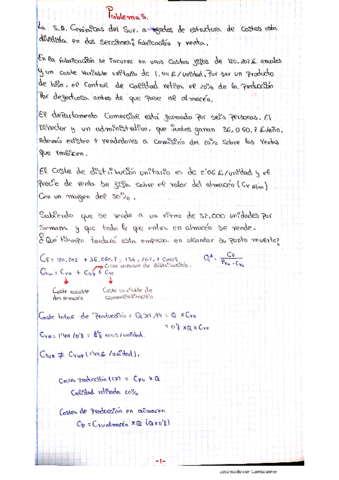 Problema 5.
La S.A. Cerámicas del Sur. a efectos de estructura de costes esta
dividida en dos secciones; fabricación y venta.
En la fabricación se incurre en unos costes fijos de 120.202 € anuales
y un coste variable unitario de 1,44 €/unidad. Por ser un producto
de lujo, el control de calidad retira el 20% de la producción
por defectuosa antes de que pase al almacén.
El departamento comercial está formado por seis personas. El
director y un administrativo, que juntos ganan 36.050,7 €/año.
Además existen 4 vendedores a comisión del 20% sobre las ventas
que realicen.
El coste de distribución unitario es de 0'06 €/unidad y el
precio de venta se fija sobre el valor del almacén (Cv alm)
con un margen del 50%.
Sabiendo que se vende a un ritmo de 52.000 unidades por
semana y que todo lo que entra en almacén se vende.
¿Qué tiempo tardará esta empresa en alcanzar su punto muerto?
CF = 120.202 + 36.050.7 =
Coste unitario de distribución.
Coste variable
del almacén
Coste variable de
comercialización.
Coste total de Producción = Q x 1,44 = Q x Cva
= 0'8 x Q x Cva
Cva = 1'44 / 0'8 = 1'8 euros/unidad.
Coste Producción (CP) = CPU x Q
Calidad retirada 20%
Costes de Producción en almacen
CP = Cvu almacén x Q (Q x 0'8)
-1-